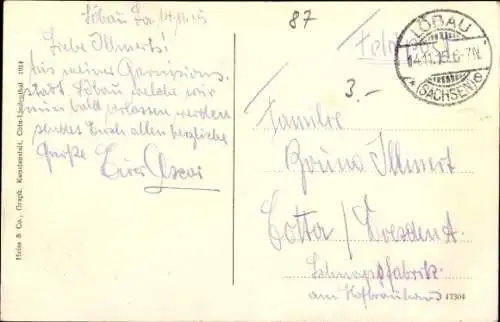 Löbau Sa 14.11.15
Liebe Illmerts!
Aus meiner Garnisons-
stadt Löbau welche wir
nun bald verlassen werden
sendet Euch allen herzliche
Grüße Euer Oscar
Heiss & Co., Graph. Kunstanstalt, Cöln-Lindenthal 1914
87
Feldpost
3.-
LÖBAU
14.11.15.6-7N.
(SACHSEN)
Familie
Bruno Illmert
Cotta / Dresden A.
Schnapsfabrik
am Hofbrauhaus
47304